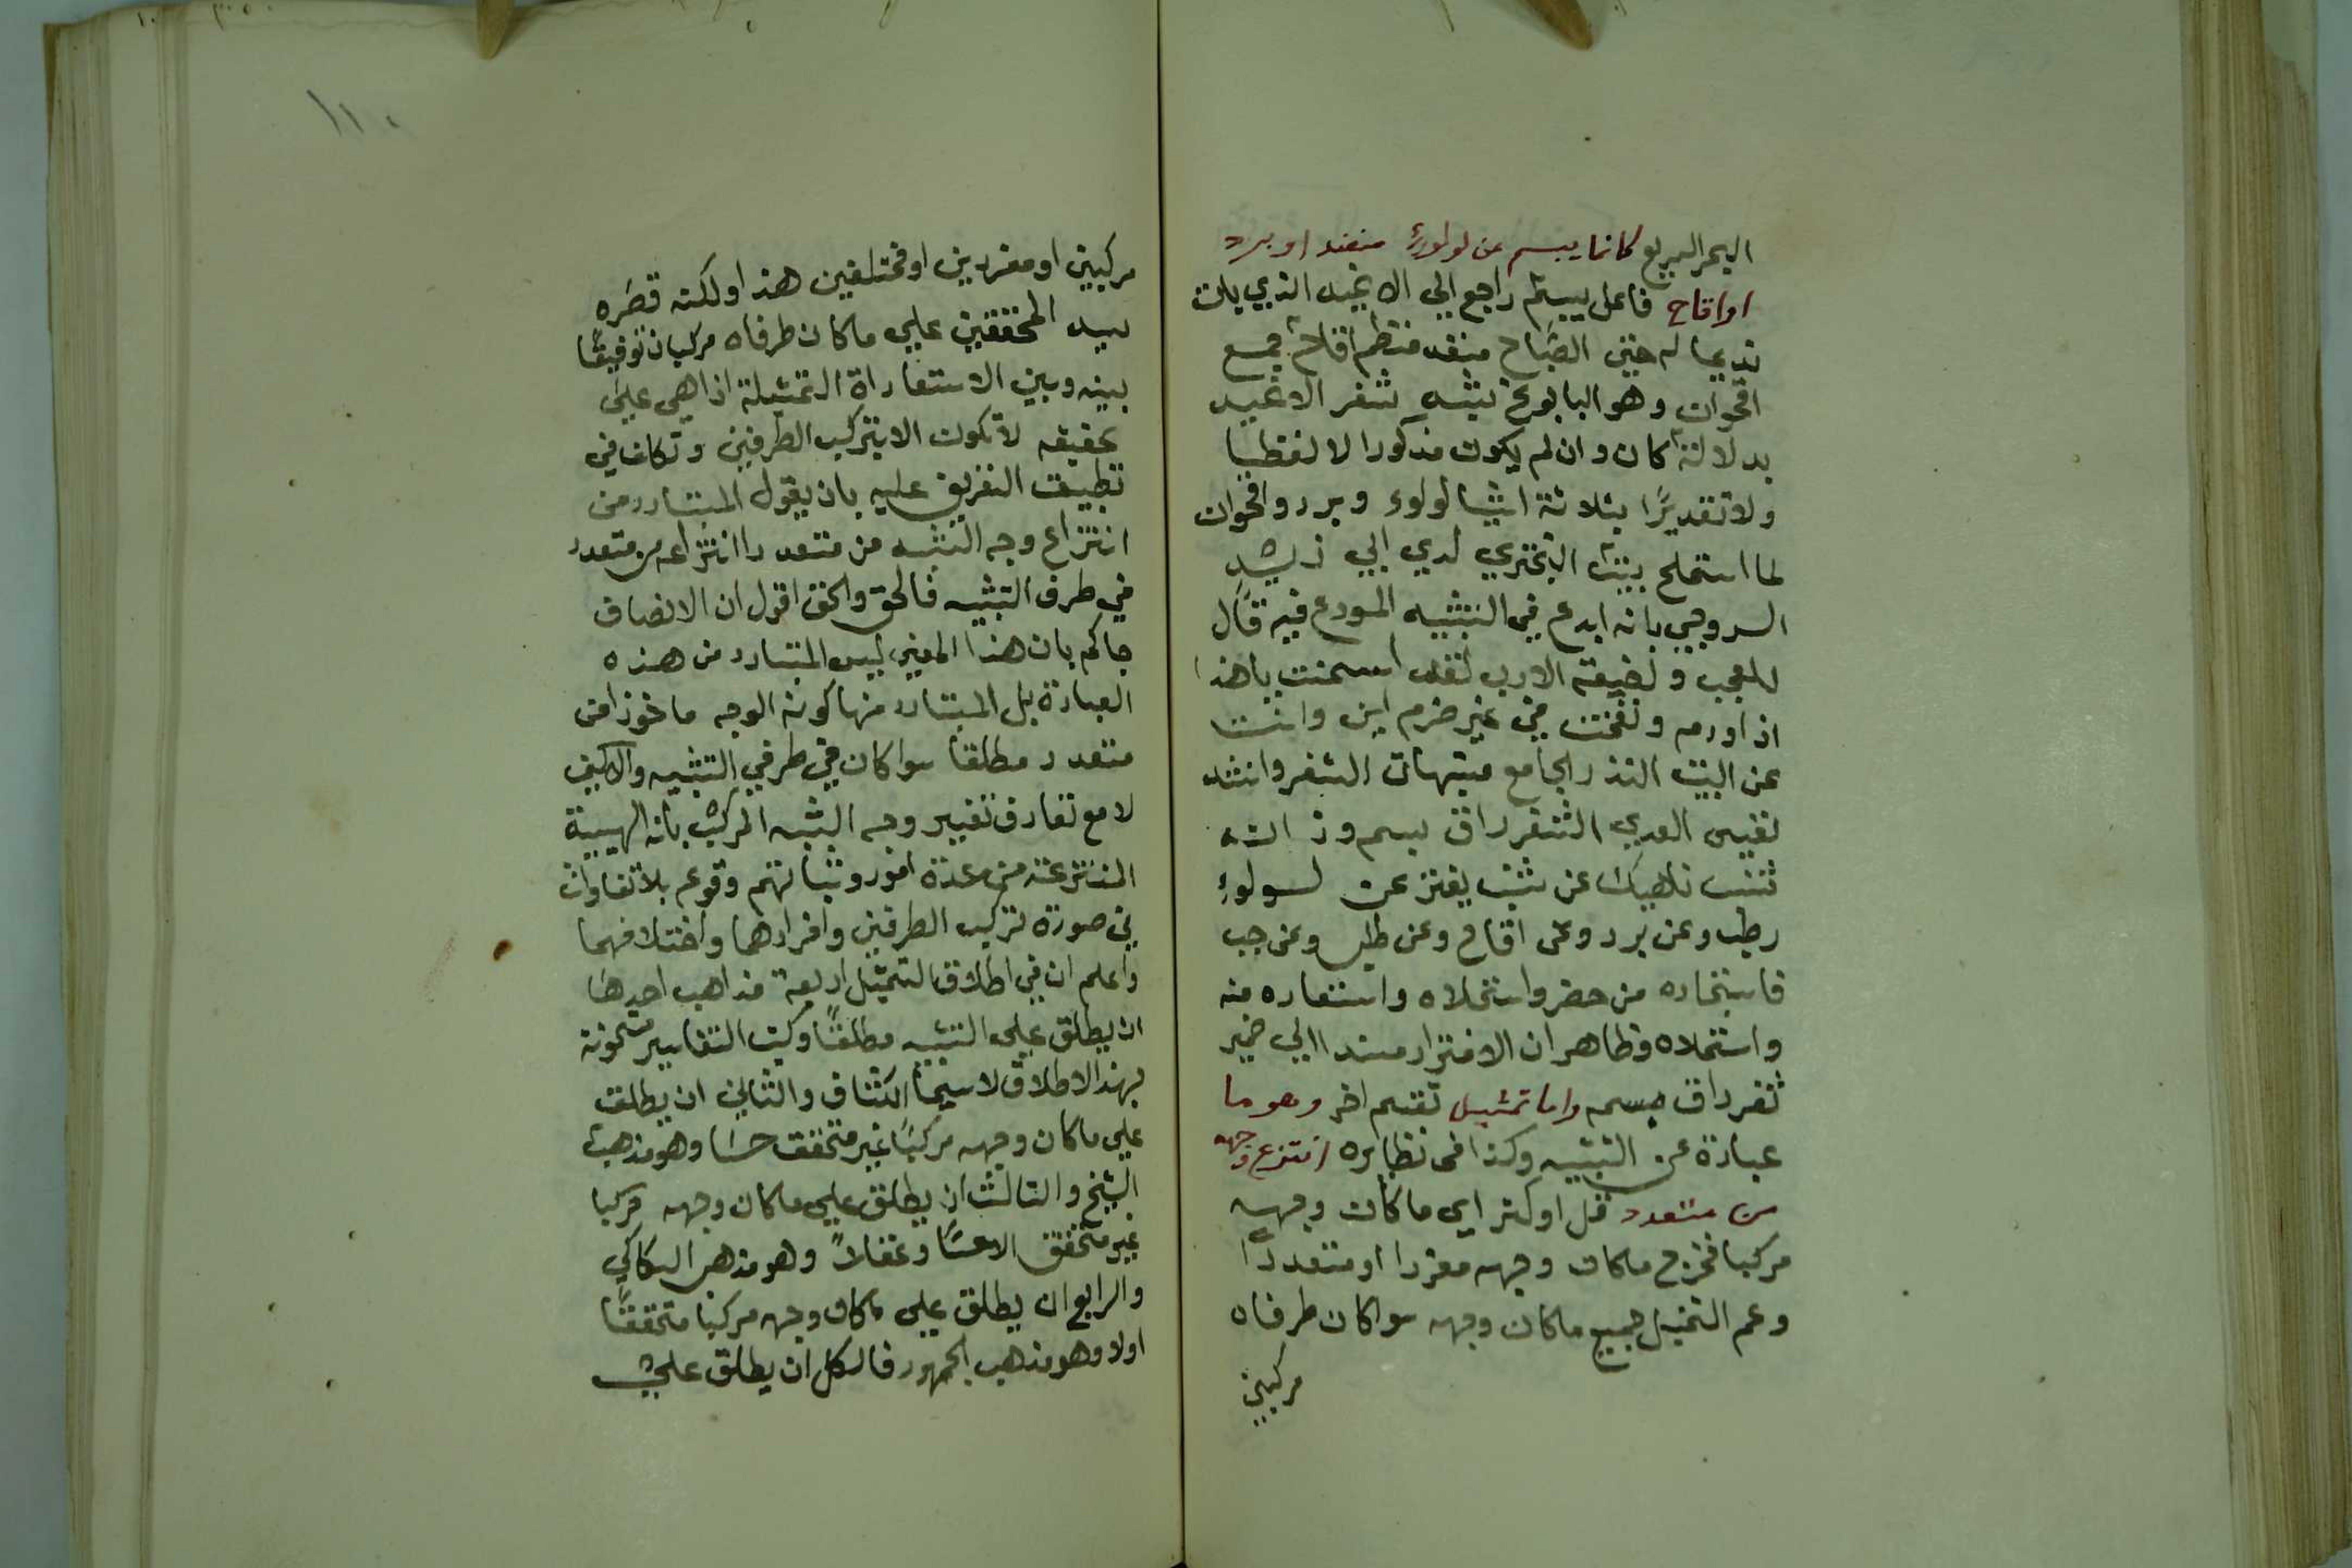 البحر السريع كانما يبسم عن لولوء منضد او برد
او اقاح فاعل يبسم راجع الي الاغيد الذي بات
نديما له حتى الصباح منضد منظم اقلاح جمع
اقحوان وهو البابونج شبه ثغر الاغيد
بدلالة كان وان لم يكون مذكورا لا لفظيا
ولا تقديرا بثلاثة اشيا لولوء وبرد واقحوان
لما استملح بيت البختري لدي ابي زيد
السروجي بانه ابدع في التشبيه المودع فيه قال
للعجب ولضيعة الادب لقد استسمنت يا هذا
اذا ورم ونفخت في غير ضرم اين وانت
عن البيت الندر الجامع مشبهات الثغر وانشد
نفسي الفدي لثغر راق بسم وزانه
شنب ناهيك عن شنب يفتر عن لولوء
رطب وعن برد وعن اقاح وعن طلع وعن حبب
فاستجاده من حضر واستحلاه واستعاده منه
واستملاه وظاهر ان الافترار مسند الي ضمير
ثغر راق مبسمه واما تمثيل تقسم اخر وهو ما
عبارة عن التشبيه وكذا في نظايره انتزع وجهه
من متعدد قل او كثر اي ما كان وجهه
مركبا فخرج ما كان وجهه مفردا او متعددا
وعم التمثيل جميع ما كان وجهه سواكان طرفاه
مركبين
١١٠
مركبين او مفردين او مختلفين هذا ولكنه قصره
سيد المحققين علي ما كان طرفاه مركبان توفيقا
بينه وبين الاستعاراة التمثيلة اذا هي علي
تحقيقه لا تكون الا بتركيب الطرفين وتكلف في
تطبيق التعريف عليه بان يقول المتبادر من
انتزاع وجه التشبيه من متعدد انتزاعه من متعدد
في طرف التشبيه فالحق والحق اقول ان الانصاف
حاكم بان هذا المعني ليس المتبادر من هذه
العبارة بل المتبادر منها كونه الوجه ماخوذا من
متعدد مطلقا سواكان في طرفي التشبيه والاكيف
لا مع تعارف تفسير وجه الشبه المركب بانه الهيية
المنتزعة من عدة امور وتبيانهم وقوعه بلا تفاوت
في صورة تركيب الطرفين وافرادهما واختلافهما
واعلم ان في اطلاق التمثيل اربعة مذاهب احدها
ان يطلق علي التشبيه مطلقا وكتب التفاسير مشحونة
بهذا الاطلاق لا سيما الكشاف والثاني ان يطلق
علي ما كان وجهه مركبا غير متحقق حسا وهو مذهب
الشيخ والثالث ان يطلق علي ما كان وجهه مركبا
غير متحقق الا حسا وعقلا وهو مذهب السكاكي
والرابع ان يطلق علي ما كان وجهه مركبا متحققا
اولا وهو مذهب الجمهور فالكل ان يطلق علي